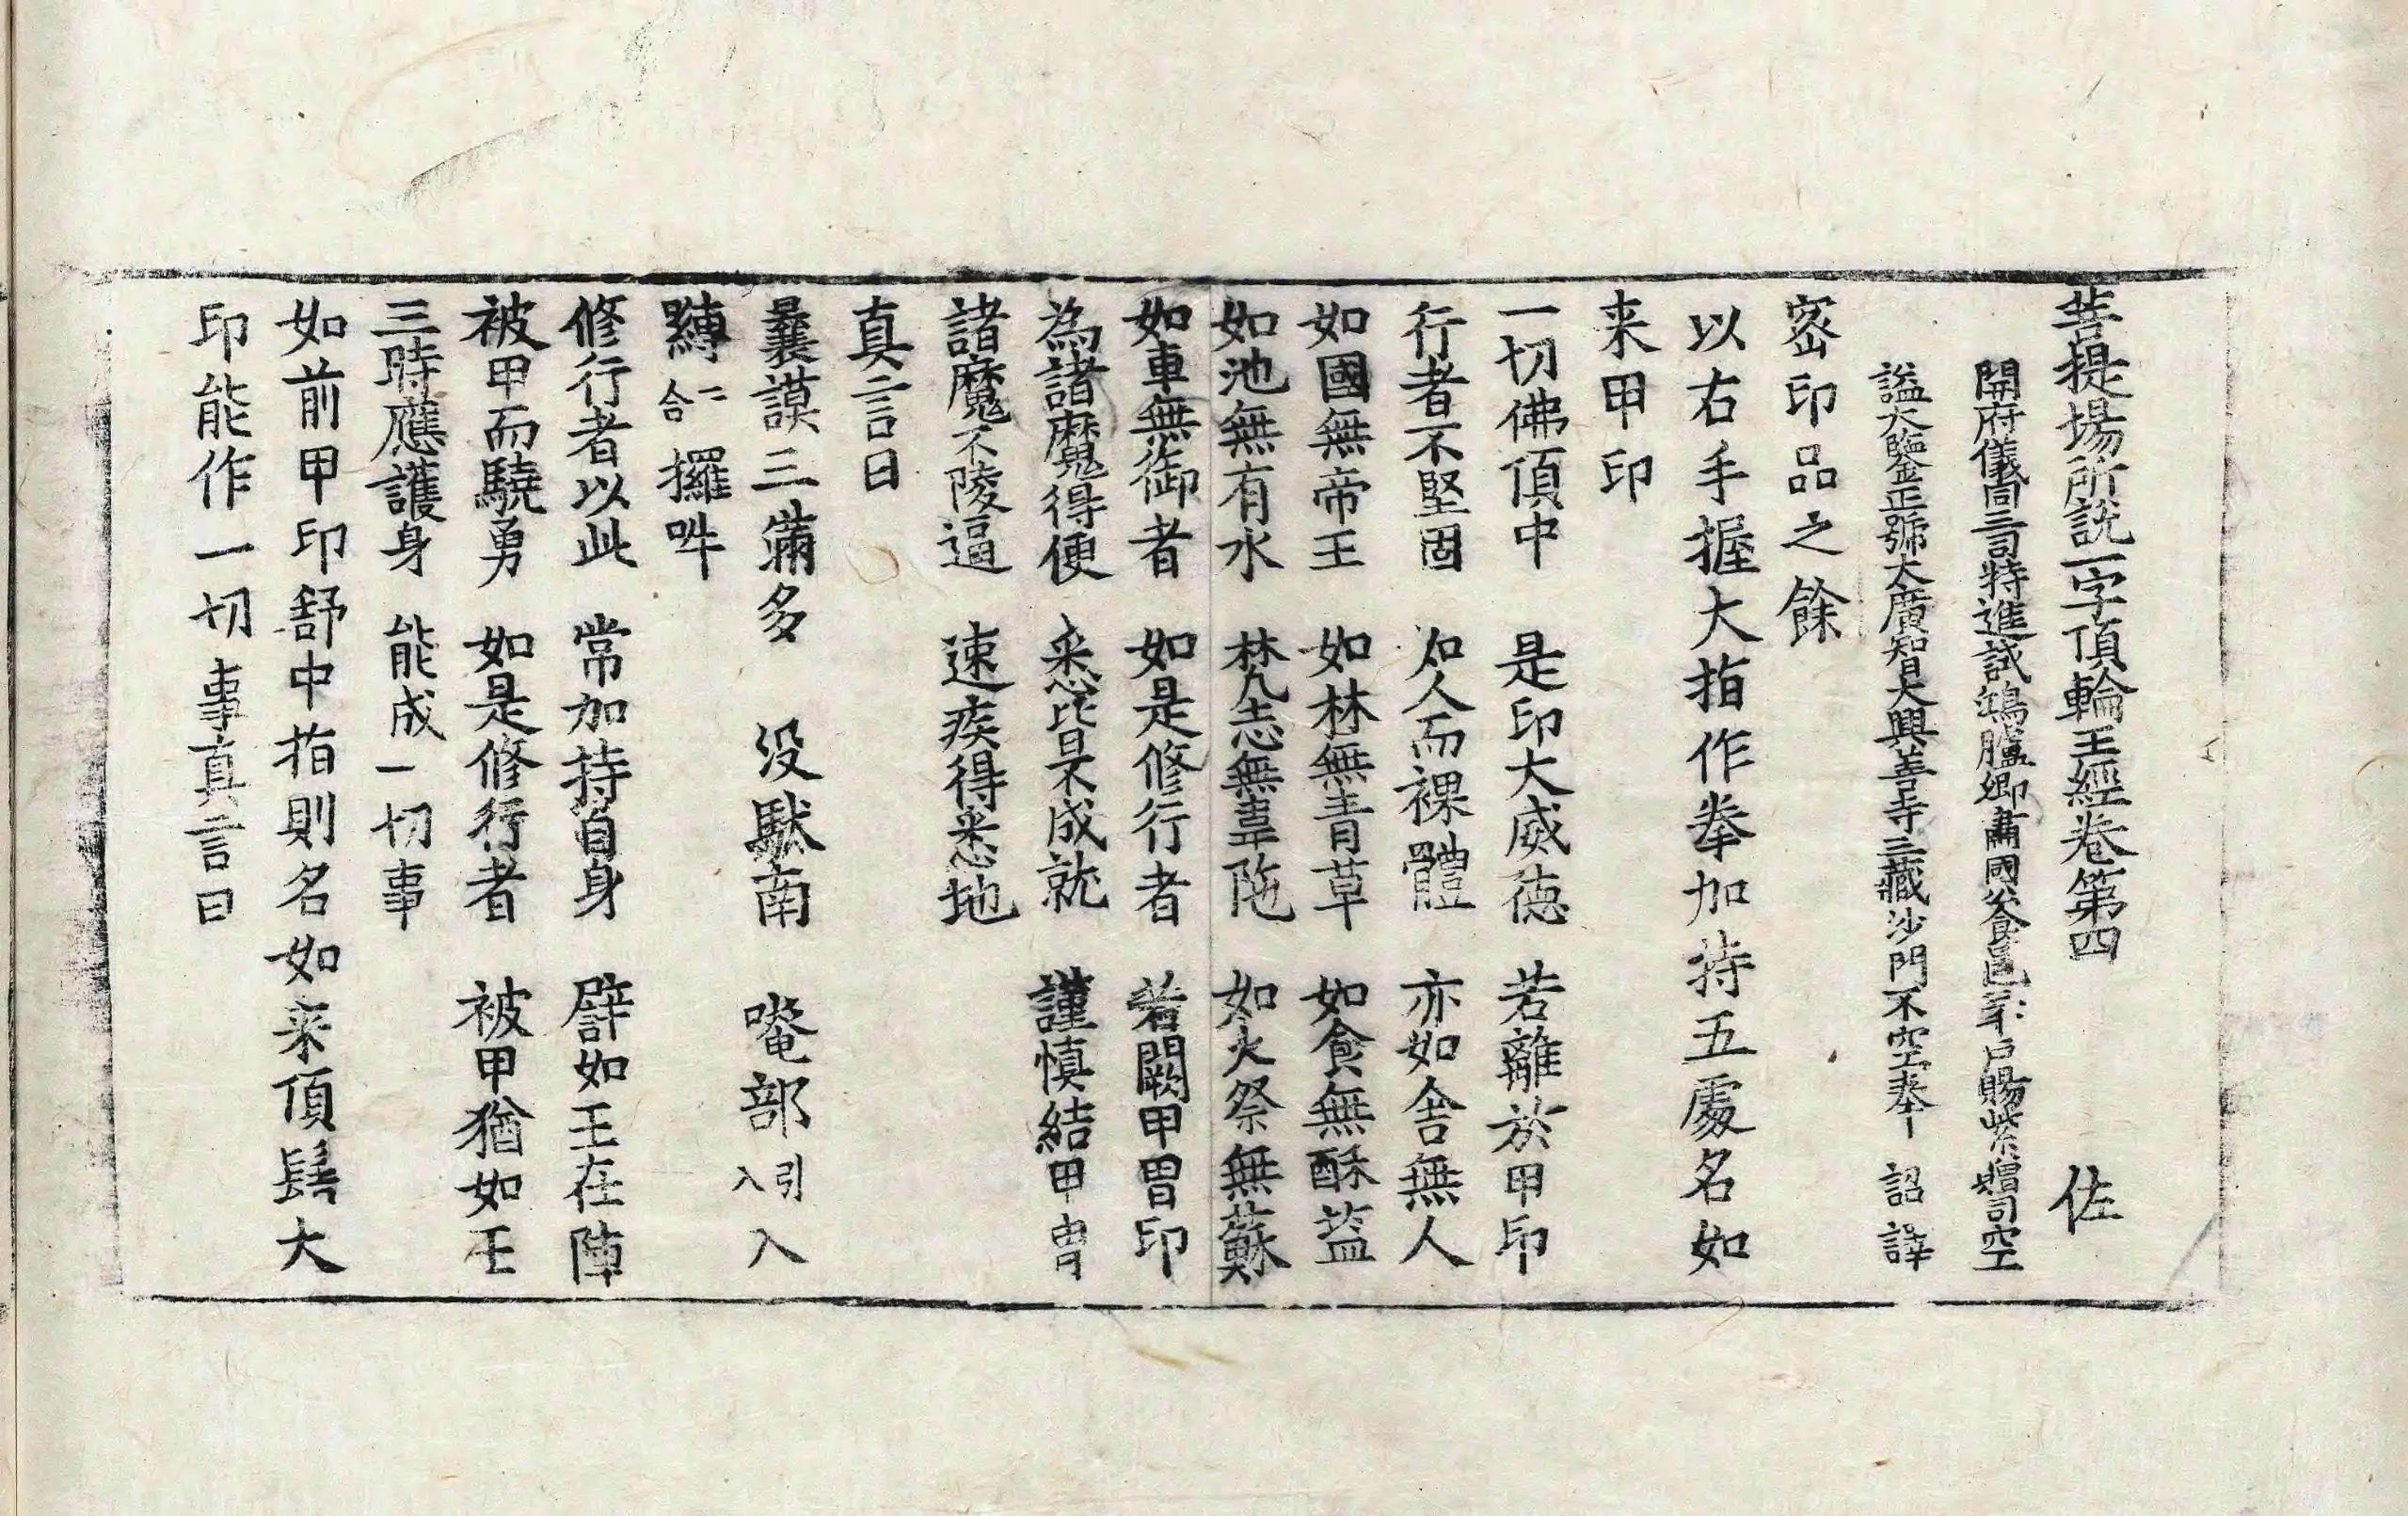 菩提場所說一字頂輪王經卷第四 佐
開府儀同三司特進試鴻臚卿肅國公食邑三千戶賜紫贈司空
謚大鑒正號大廣智大興善寺三藏沙門不空奉 詔譯
密印品之餘
以右手握大指作拳加持五處名如
来甲印
一切佛頂中 是印大威德 若離於甲印
行者不堅固 如人而裸體 亦如舍無人
如國無帝王 如林無青草 如食無酥益
如池無有水 梵志無韋陁 如火祭無蘇
如車無御者 如是修行者 若闕甲冑印
為諸魔得便 悉皆不成就 謹慎結甲冑
諸魔不陵逼 速疾得悉地
真言曰
曩謨三滿多 没馱南 唵部引入入
嚩二合攞吽
修行者以此 常加持自身 譬如王在陣
被甲而驍勇 如是修行者 被甲猶如王
三時應護身 能成一切事
如前甲印舒中指則名如来頂髻大
印能作一切事真言曰